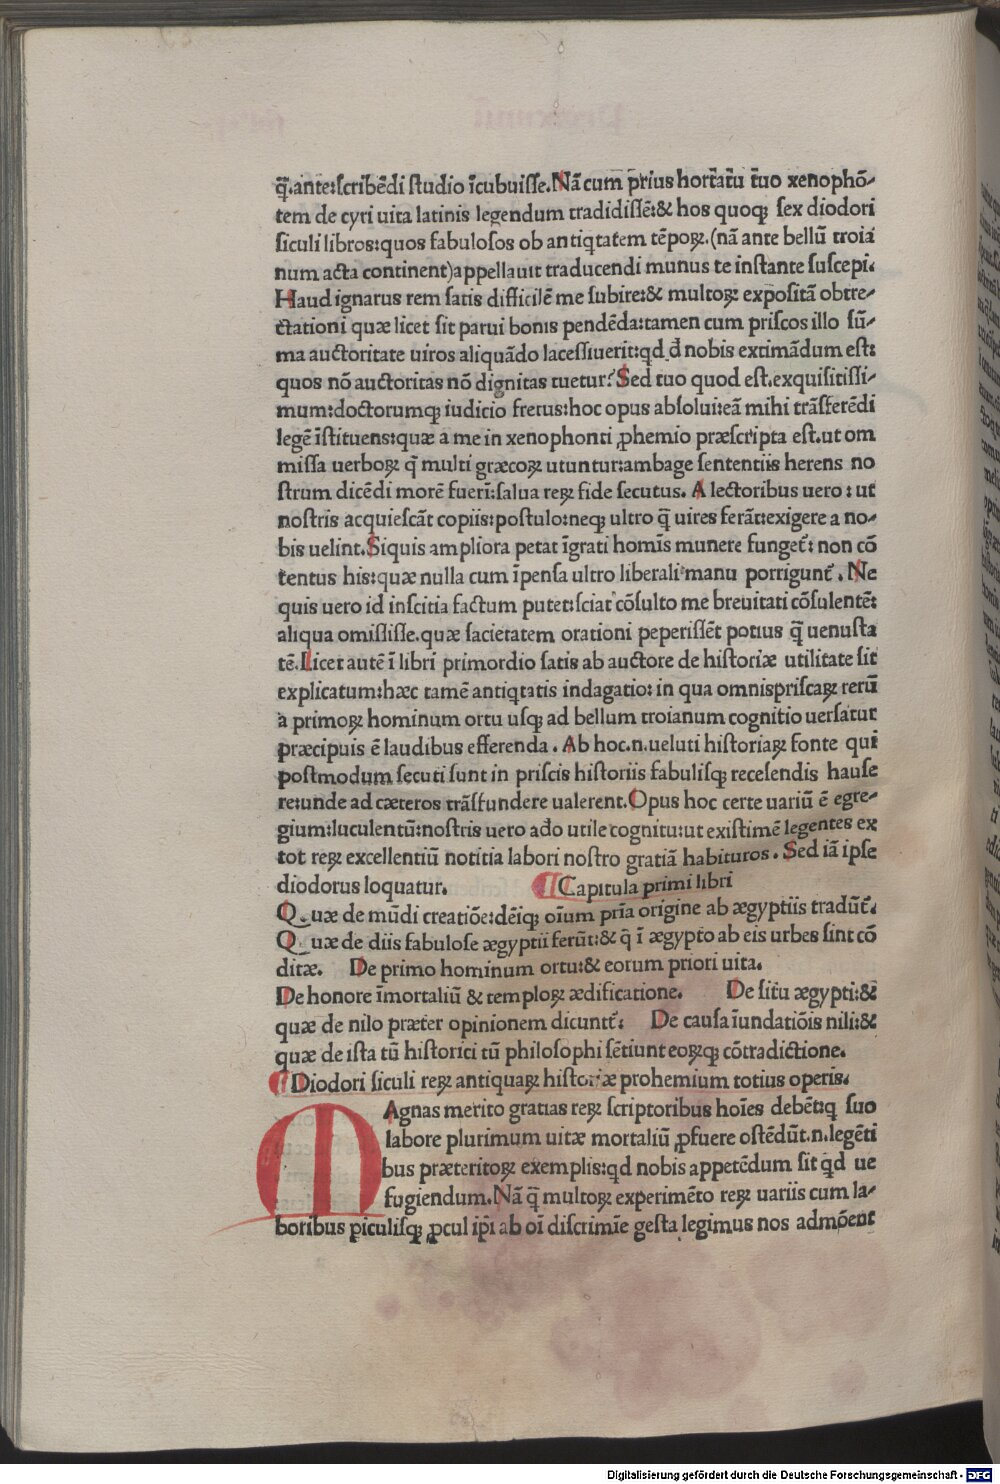 q̃.ante:ſcribēdi ſtudio īcubuiſſe.Nā cum p̄rius hortatū tuo xenophō-
tem de cyri uita latinis legendum tradidiſſē:& hos quoqꝫ ſex diodori
ſiculi libros:quos fabuloſos ob antiq̇tatem tēpoꝝ.(nā ante bellū troia
num acta continent)appellauit traducendi munus te inſtante ſuſcepi.
Haud ignarus rem ſatis difficilē me ſubire:& multoꝝ expoſitā obtre-
ctationi quæ licet ſit parui bonis pendēda:tamen cum priſcos illo ſū-
ma auctoritate uiros aliquādo laceſſiuerit:qd đ nobis extimādum eſt:
quos nō auctoritas nō dignitas tuetur?Sed tuo quod eſt.exquiſitiſſi-
mum:doctorumqꝫ iudicio fretus:hoc opus abſolui:eā mihi trāſferēdi
legē īſtituens:quæ a me in xenophonti ꝓhemio præſcripta eſt.ut om
miſſa uerboꝝ q̄ multi græcoꝝ utuntur:ambage ſententiis herens no
ſtrum dicēdi morē fueri:ſalua reꝝ fide ſecutus. A lectoribus uero : ut
noſtris acquieſcāt copiis:poſtulo:neqꝫ ultro q̄ uires ferāt:exigere a no-
bis uelint.Siquis ampliora petat īgrati homīs munere fungeť: non cō
tentus his:quæ nulla cum īpenſa ultro liberali manu porrigunť. Ne
quis uero id inſcitia factum putet:ſciat cōſulto me breuitati cōſulentē:
aliqua omiſiſſe.quæ ſacietatem orationi peperiſſēt potius q̄ uenuſta
tē.Licet autē ī libri primordio ſatis ab auctore de hiſtoriæ utilitate ſit
explicatum:hæc tamē antiq̇tatis indagatio: in qua omnispriſcaꝝ rerū
a primoꝝ hominum ortu uſqꝫ ad bellum troianum cognitio uerſatur
præcipuis ē laudibus efferenda . Ab hoc.n.ueluti hiſtoriaꝝ fonte qui
poſtmodum ſecuti ſunt in priſcis hiſtoriis fabuliſqꝫ receſendis hauſe
re:unde ad cæteros trāſfundere ualerent.Opus hoc certe uariū ē egre-
gium:luculentū:noſtris uero ado utile cognitu:ut exiſtimē legentes ex
tot reꝝ excellentiū notitia labori noſtro gratiā habituros . Sed iā ipſe
diodorus loquatur. ¶Capitula primi libri
Quæ de mūdi creatiōe:dēiqꝫ oīum pr̄ia origine ab ægyptiis tradūť.
Quæ de diis fabuloſe ægyptii ferūt:& q̄ ī ægypto ab eis urbes ſint cō
ditæ. De primo hominum ortu:& eorum priori uita.
De honore īmortaliū & temploꝝ ædificatione. De ſitu ægypti:&
quæ de nilo præter opinionem dicuntť: De cauſa īundatiōis nili:&
quæ de iſta tū hiſtorici tū philoſophi ſētiunt eoꝝqꝫ cōtradictione.
¶Diodori ſiculi reꝝ antiquaꝝ hiſtoriæ prohemium totius operis.
MAgnas merito gratias reꝝ ſcriptoribus hoīes debēt:q ſuo
labore plurimum uitæ mortaliū ꝓfuere oſtēdūt.n.legēti
bus præteritoꝝ exemplis:qd nobis appetēdum ſit q̇d ue
fugiendum.Nā q̄ multoꝝ experimēto reꝝ uariis cum la-
boribus piculiſqꝫ ꝓcul ip̄i ab oī diſcrimīe geſta legimus nos admōent
Digitalisierung gefördert durch die Deutsche Forschungsgemeinschaft - DFG